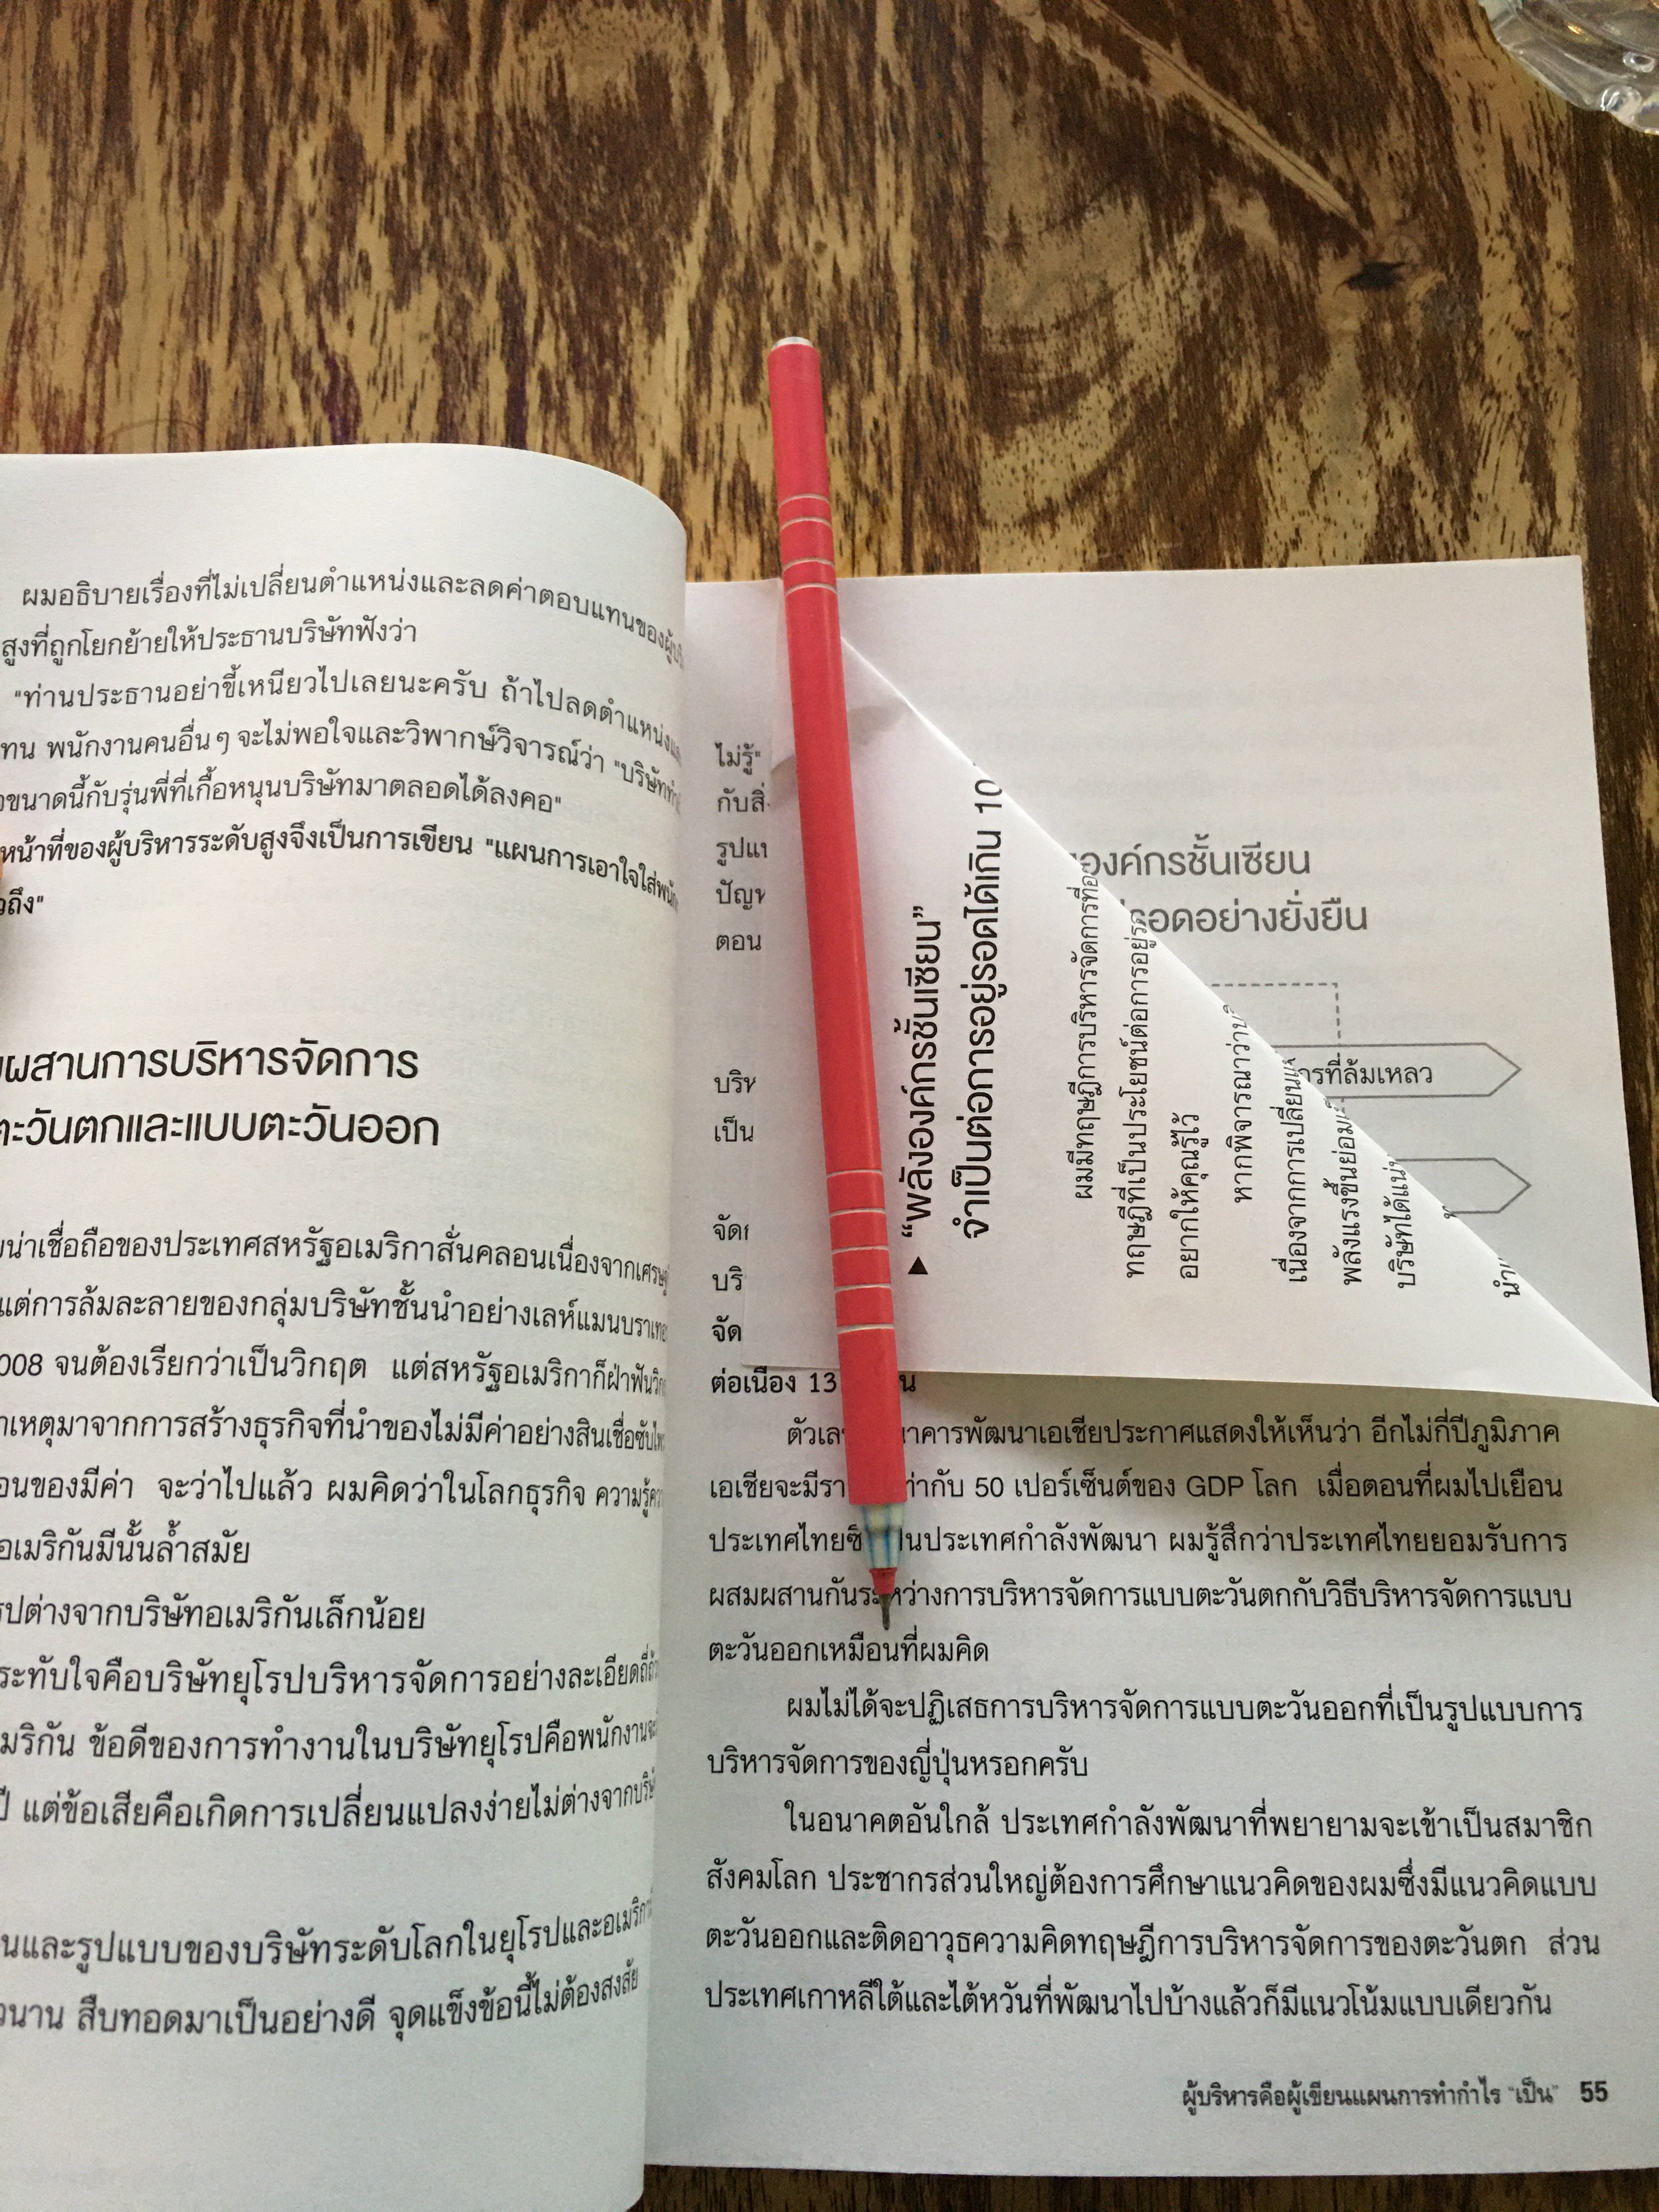 ผมอธิบายเรื่องที่ไม่เปลี่ยนตำแหน่งและลดค่าตอบแทนของ
สูงที่ถูกโยกย้ายให้ประธานบริษัทฟังว่า
"ท่านประธานอย่าขี้เหนียวไปเลยนะครับ ถ้าไปลดตำแหน่ง
ทน พนักงานคนอื่นๆ จะไม่พอใจและวิพากษ์วิจารณ์ว่า "บริษัท
ขนาดนี้กับรุ่นพี่ที่เกื้อหนุนบริษัทมาตลอดได้ลงคอ"
หน้าที่ของผู้บริหารระดับสูงจึงเป็นการเขียน "แผนการเอาใจใส่
ถึง"
ผสานการบริหารจัดการ
ตะวันตกและแบบตะวันออก
น่าเชื่อถือของประเทศสหรัฐอเมริกาสั่นคลอนเนื่องจาก
แต่การล้มละลายของกลุ่มบริษัทชั้นนำอย่างเลห์แมนบราเทอ
008 จนต้องเรียกว่าเป็นวิกฤต แต่สหรัฐอเมริกาก็ฝ่าฟัน
เหตุมาจากการสร้างธุรกิจที่นำของไม่มีค่าอย่างสินเชื่อซับ
อนของมีค่า จะว่าไปแล้ว ผมคิดว่าในโลกธุรกิจ ความรู้
อเมริกันมีนั้นล้ำสมัย
รปต่างจากบริษัทอเมริกันเล็กน้อย
ระทับใจคือบริษัทยุโรปบริหารจัดการอย่างละเอียด
มริกัน ข้อดีของการทำงานในบริษัทยุโรปคือพนักงาน
ปี แต่ข้อเสียคือเกิดการเปลี่ยนแปลงง่ายไม่ต่างจาก
นและรูปแบบของบริษัทระดับโลกในยุโรปและอเมริกา
นาน สืบทอดมาเป็นอย่างดี จุดแข็งข้อนี้ไม่ต้องสงสัย
ไม่รู้"
กับสิ่
รูปแบ
ปัญห
ตอน
บริษ
เป็น
จัดก
บริ
จัด
ต่อเนื่อง 13 น
ตัวเล าคารพัฒนาเอเชียประกาศแสดงให้เห็นว่า อีกไม่กี่ปีภูมิภาค
เอเชียจะมีรา ท่ากับ 50 เปอร์เซ็นต์ของ GDP โลก เมื่อตอนที่ผมไปเยือน
ประเทศไทยซึ่ นประเทศกำลังพัฒนา ผมรู้สึกว่าประเทศไทยยอมรับการ
ผสมผสานกันระหว่างการบริหารจัดการแบบตะวันตกกับวิธีบริหารจัดการแบบ
ตะวันออกเหมือนที่ผมคิด
ผมไม่ได้จะปฏิเสธการบริหารจัดการแบบตะวันออกที่เป็นรูปแบบการ
บริหารจัดการของญี่ปุ่นหรอกครับ
ในอนาคตอันใกล้ ประเทศกำลังพัฒนาที่พยายามจะเข้าเป็นสมาชิก
สังคมโลก ประชากรส่วนใหญ่ต้องการศึกษาแนวคิดของผมซึ่งมีแนวคิดแบบ
ตะวันออกและติดอาวุธความคิดทฤษฎีการบริหารจัดการของตะวันตก ส่วน
ประเทศเกาหลีใต้และไต้หวันที่พัฒนาไปบ้างแล้วก็มีแนวโน้มแบบเดียวกัน
ผู้บริหารคือผู้เขียนแผนการทำกำไร "เป็น" 55
▲ "พลังองค์กรชั้นเซียน"
จำเป็นต่อการอยู่รอดได้เกิน 10
ผมมีทฤษฎีการบริหารจัดการที่อ
ทฤษฎีที่เป็นประโยชน์ต่อการอยู่ร
อยากให้คุณรู้ไว้
หากพิจารณาว่า
เนื่องจากการเปลี่ยนแ
พลังแรงขึ้นย่อม
บริษัทได้แน่
นำ
องค์กรชั้นเซียน
รอดอย่างยั่งยืน
ารที่ล้มเหลว